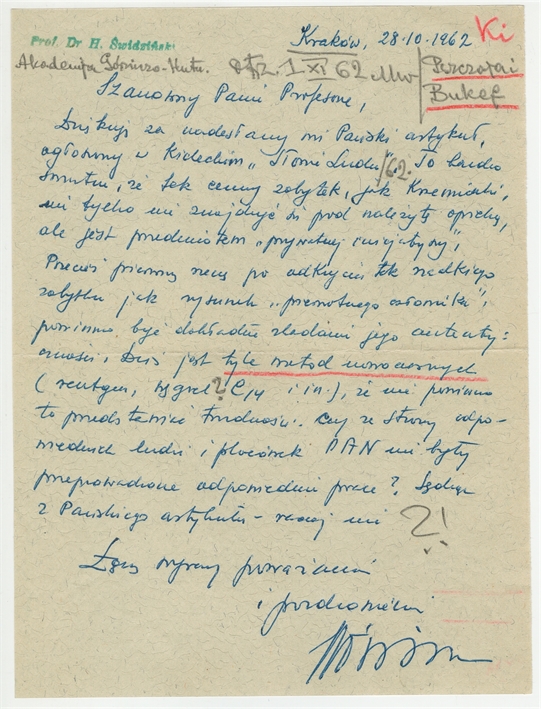 Prof. Dr H. Świdziński
Kraków, 28.10.1962
Ki
Akademja Górniczo-Hutn.
1 XI 62
Bukef
Szanowny Panie Profesorze,
Dziękuję za nadesłany mi Pański artykuł,
ogłoszony w Kieleckim „Słowie Ludu" /62. To bardzo
smutne, że tak cenny zabytek, jak Krzemionki,
nie tylko nie znajduje się pod należytą opieką,
ale jest przedmiotem „prywatnej inicjatywy".
Przecież pierwszą rzeczą po odkryciu tak rzadkiego
zabytku jak rysunek „pierwotnego człowieka",
powinno być dokładne zbadanie jego autenty=
czności. Dziś jest tyle metod nowoczesnych
(rentgen, węgiel ? C14 i in.), że nie powinno
to przedstawiać trudności. Czy ze strony odpo-
wiednich ludzi i placówek PAN nie były
przeprowadzone odpowiednie prace? Sądząc
z Pańskiego artykułu - raczej nie ?!
Łączę wyrazy poważania
i pozdrowienia